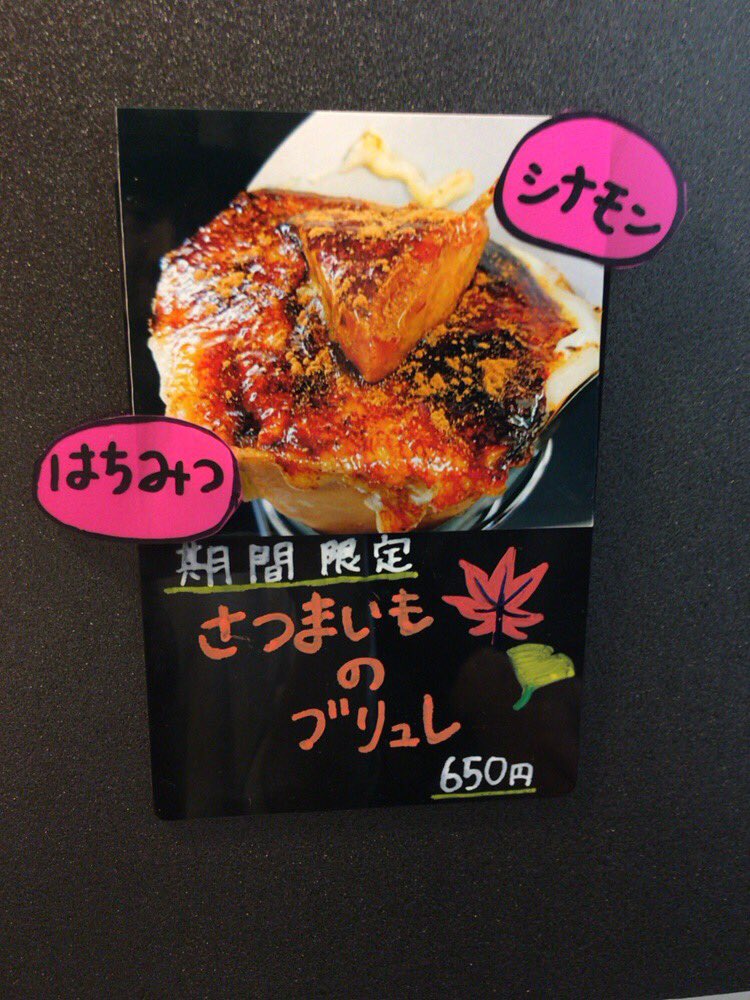 シナモン
はちみつ
期間限定
さつまいも
の
ブリュレ
650円